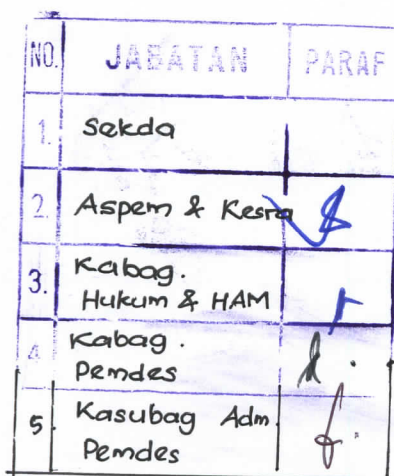 NO. JABATAN PARAF
1. Sekda
2. Aspem & Kesra
3. Kabag.
Hukum & HAM
4. Kabag.
Pemdes
5 Kasubag Adm.
Pemdes